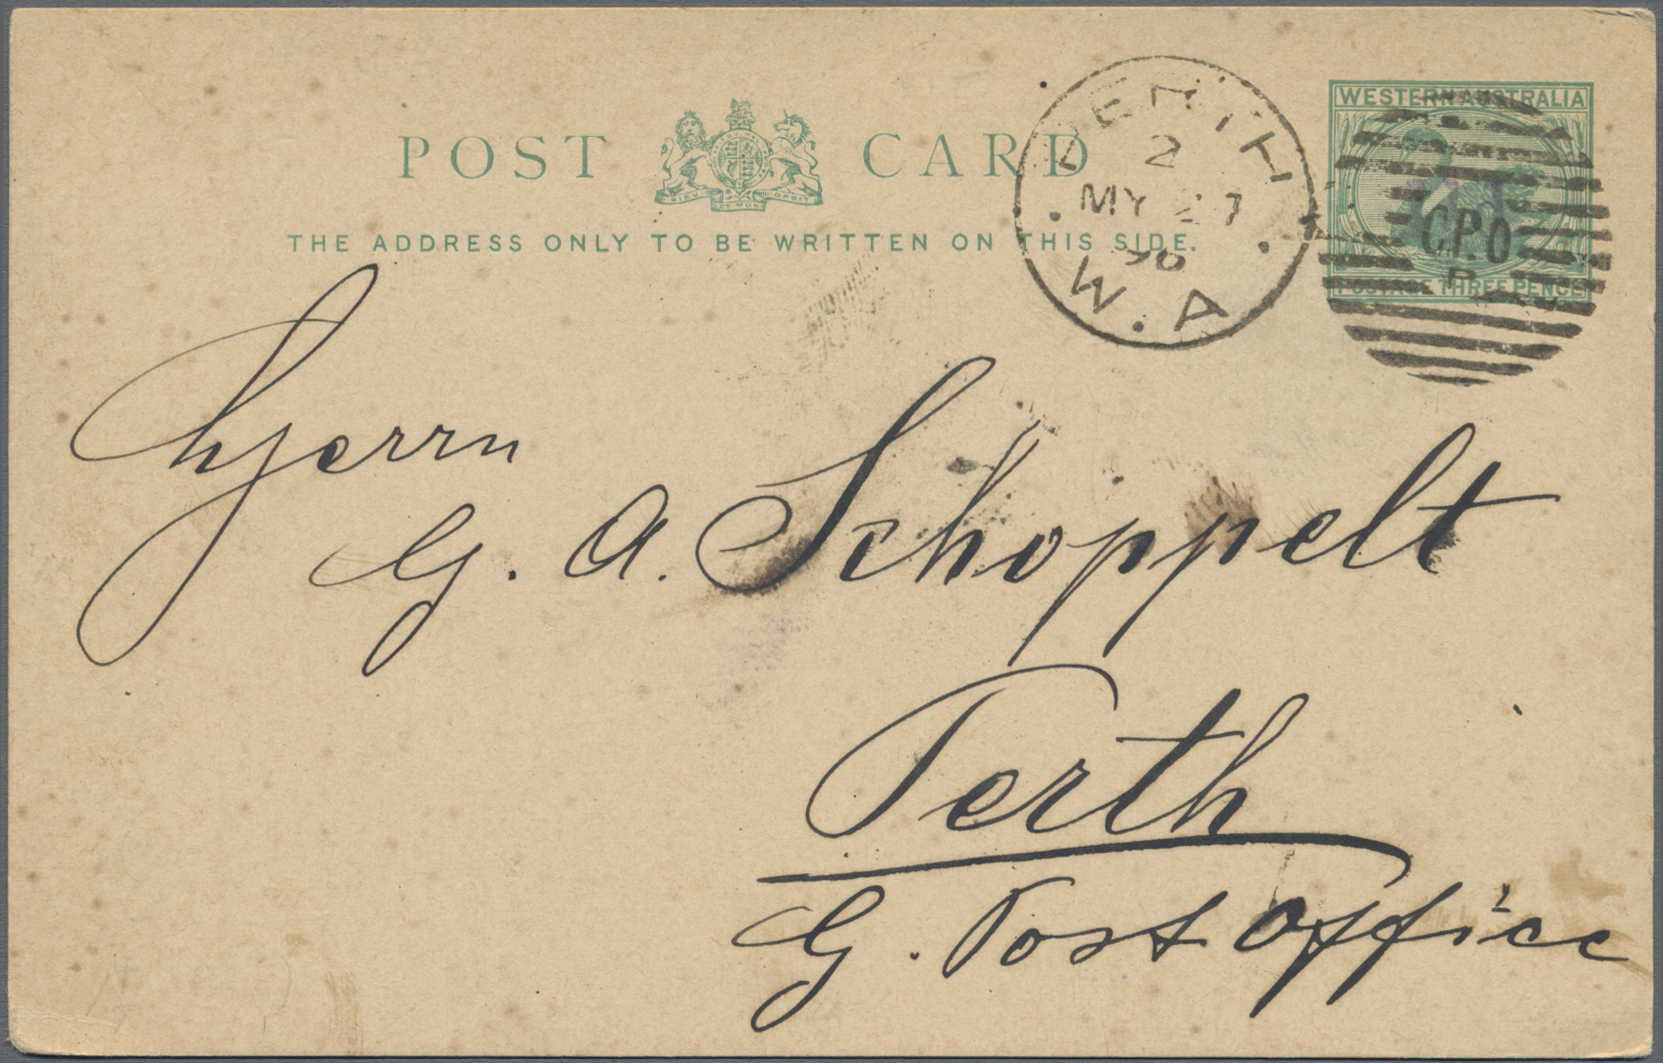 POST CARD
THE ADDRESS ONLY TO BE WRITTEN ON THIS SIDE.
PERTH
2
MY 27
96
W.A
WESTERN AUSTRALIA
G.P.O
P
POSTAGE THREE PENCE
Herrn
G. A. Schoppelt
Perth
G. Post Office